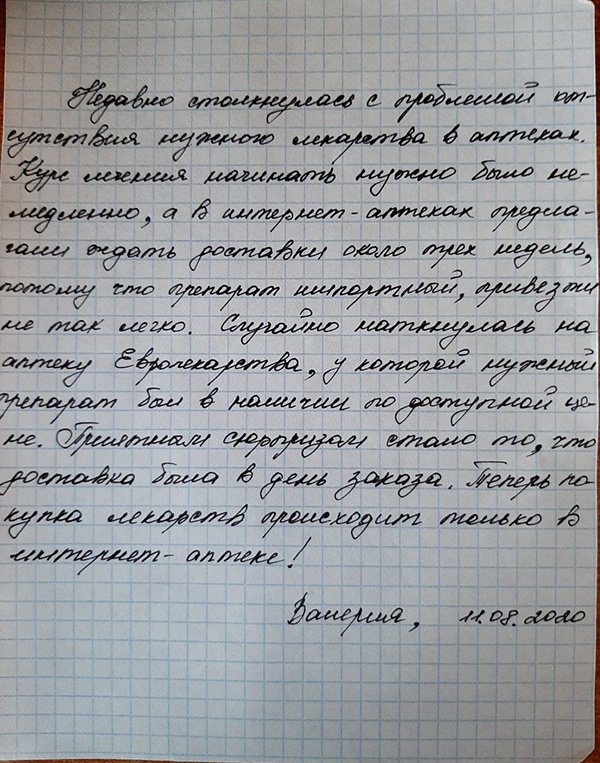 Недавно столкнулась с проблемой от-
сутствия нужного лекарства в аптеках.
Курс лечения начинать нужно было не-
медленно, а в интернет-аптеках предла-
гали ждать доставки около трех недель,
потому что препарат импортный, привезти
не так легко. Случайно наткнулась на
аптеку Евролекарства, у которой нужный
препарат был в наличии по доступной це-
не. Приятным сюрпризом стало то, что
доставка была в день заказа. Теперь по
купка лекарств происходит только в
интернет-аптеке!
Валерия, 11.08.2020